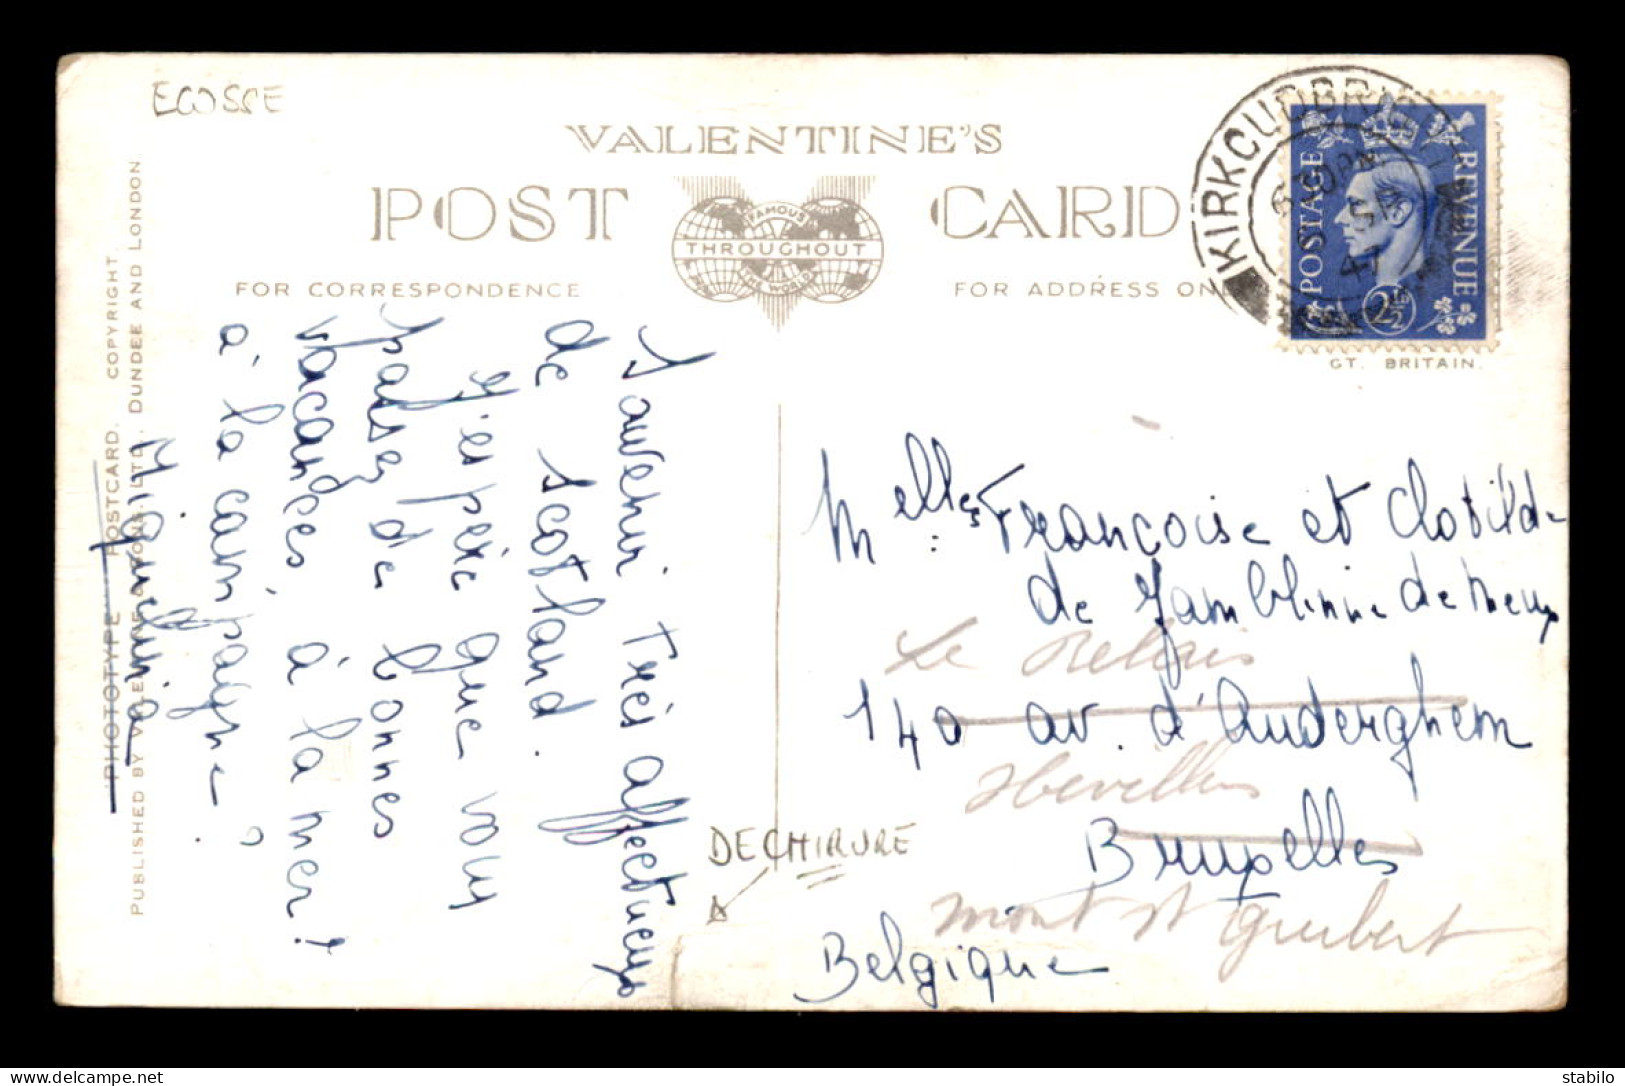 ECOSSE
VALENTINE'S
POST CARD
FAMOUS
THROUGHOUT
THE WORLD
FOR CORRESPONDENCE
FOR ADDRESS ON
KIRKCUDBRIG
47
POSTAGE REVENUE
2½
GT. BRITAIN.
PHOTOTYPE POSTCARD. COPYRIGHT.
PUBLISHED BY VALENTINE & SONS, LTD., DUNDEE AND LONDON.
Souvenir très affectueux
de Scotland.
J'espère que vous
passez de bonnes
vacances, à la mer!
à la campagne?
Miguelinia
Melles Françoise et Clotilde
de Jamblinne de Meux
Le Relais
140 av. d'Auderghem
Hevillers
Bruxelles
Mont St Guibert
Belgique
DECHIRURE
stabilo